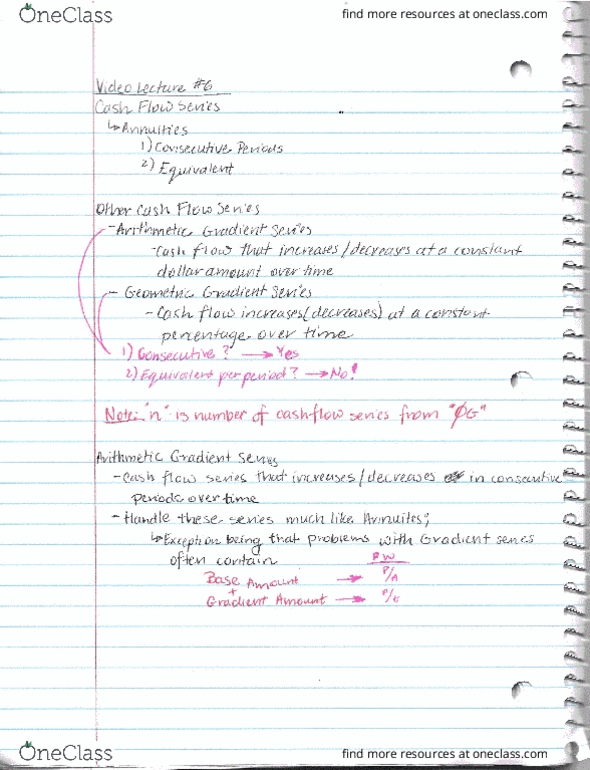 OneClass
find more resources at oneclass.com
Video Lecture #6
Cash Flow Series
↳Annuities
1) Consecutive Periods
2) Equivalent
Other Cash Flow Series
- Arithmetic Gradient Series
- Cash flow that increases/decreases at a constant
dollar amount over time
- Geometric Gradient Series
- Cash flow increases(decreases) at a constant
percentage over time
1) Consecutive? → Yes
2) Equivalent per period? → No!
Note: "n" is number of cashflow series from "ØG"
Arithmetic Gradient Series
- Cash flow series that increases/decreases in consecutive
periods over time
- Handle these series much like Annuites;
↳Exception being that problems with Gradient series
often contain
PW
Base Amount → P/A
+
Gradient Amount → P/G
OneClass
find more resources at oneclass.com